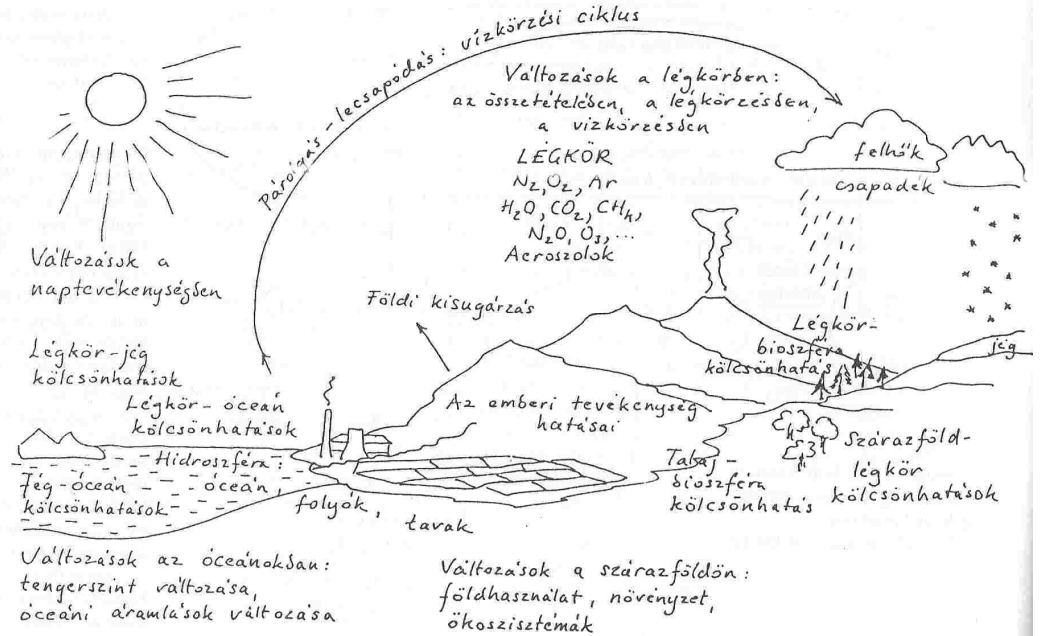 Párolgás-lecsapódás: vízkörzési ciklus
Változások a légkörben:
az összetételében, a légkörzésben,
a vízkörzésben
LÉGKÖR
N₂, O₂, Ar
H₂O, CO₂, CH₄,
N₂O, O₃, ...
Aeroszolok
felhők
csapadék
Változások a
naptevékenységben
Földi kisugárzás
Légkör-
bioszféra
kölcsönhatás
jég
Légkör-jég
kölcsönhatások
Légkör-óceán
kölcsönhatások
Az emberi tevékenység
hatásai
Hidroszféra:
óceán,
folyók,
tavak
Jég-óceán
kölcsönhatások
Talaj-
bioszféra
kölcsönhatás
Szárazföld-
légkör
kölcsönhatások
Változások az óceánokban:
tengerszint változása,
óceáni áramlások változása
Változások a szárazföldön:
földhasználat, növényzet,
ökoszisztémák